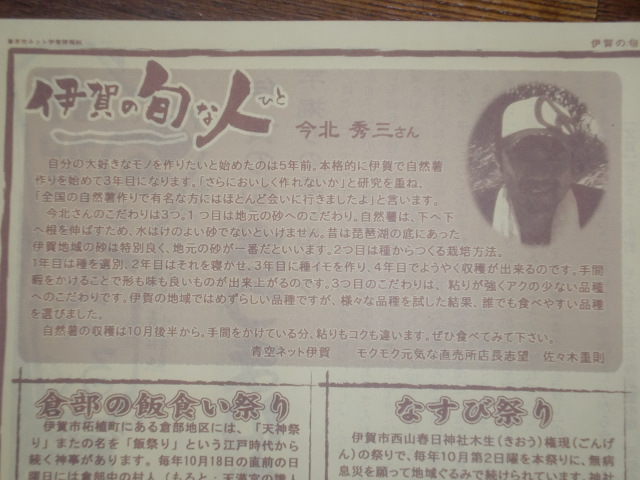 伊賀の旬
伊賀の旬な人 ひと
今北 秀三さん
自分の大好きなモノを作りたいと始めたのは5年前。本格的に伊賀で自然薯
作りを始めて3年目になります。「さらにおいしく作れないか」と研究を重ね、
「全国の自然薯作りで有名な方にはほとんど会いに行きましたよ」と言います。
今北さんのこだわりは3つ。1つ目は地元の砂へのこだわり。自然薯は、下へ下
へ根を伸ばすため、水はけのよい砂でないといけません。昔は琵琶湖の底にあった
伊賀地域の砂は特別良く、地元の砂が一番だといいます。2つ目は種からつくる栽培方法。
1年目は種を選別、2年目はそれを寝かせ、3年目に種イモを作り、4年目でようやく収穫が出来るのです。手間
暇をかけることで形も味も良いものが出来上がるのです。3つ目のこだわりは、粘りが強くアクの少ない品種
へのこだわりです。伊賀の地域ではめずらしい品種ですが、様々な品種を試した結果、誰でも食べやすい品種
を選びました。
自然薯の収穫は10月後半から。手間をかけている分、粘りもコクも違います。ぜひ食べてみて下さい。
青空ネット伊賀 モクモク元気な直売所店長志望 佐々木重則
倉部の飯食い祭り
伊賀市柘植町にある倉部地区には、「天神祭
り」またの名を「飯祭り」という江戸時代から
続く神事があります。毎年10月18日の直前の日
曜日には倉部中の村人（もると・天満宮の
なすび祭り
伊賀市西山春日神社木生（きおう）権現（ごんげ
ん）の祭りで、毎年10月第2日曜を本祭りに、無病
息災を願って地域ぐるみで続けられています。神社